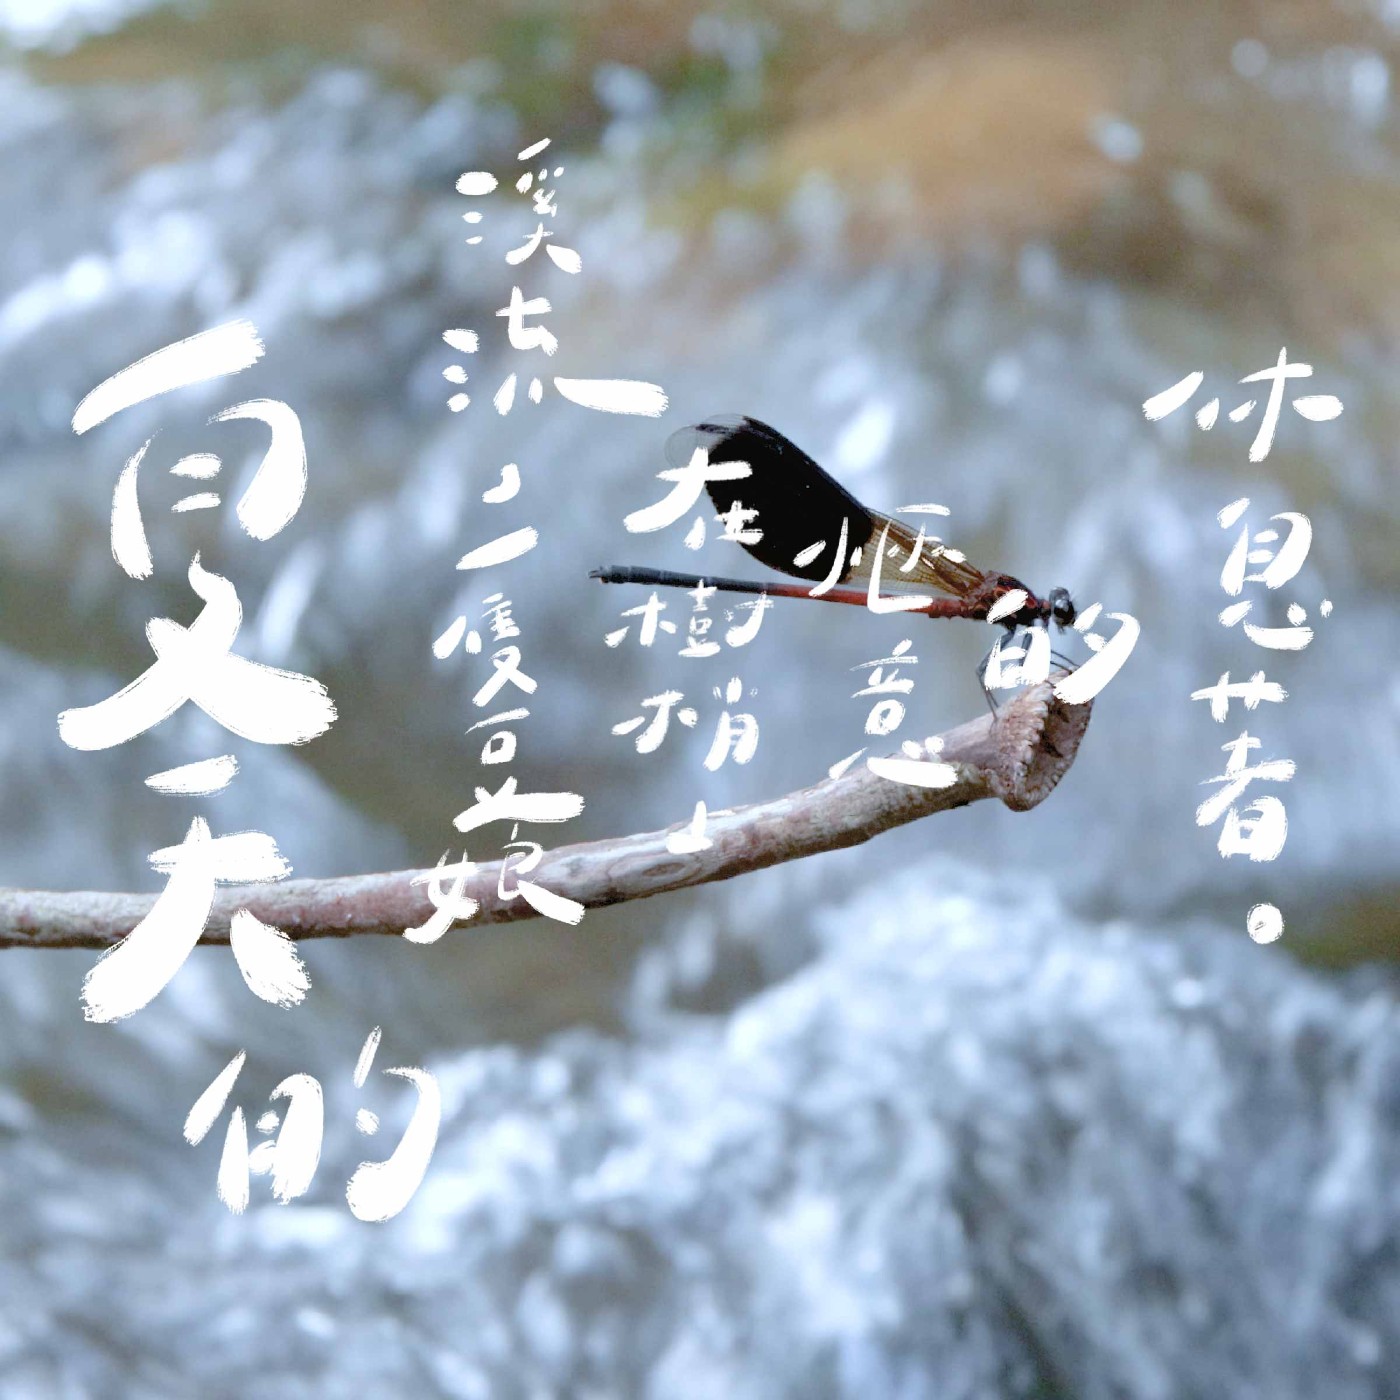 夏天的
溪流，一隻豆娘
在樹梢上
愜意
的
休息著。